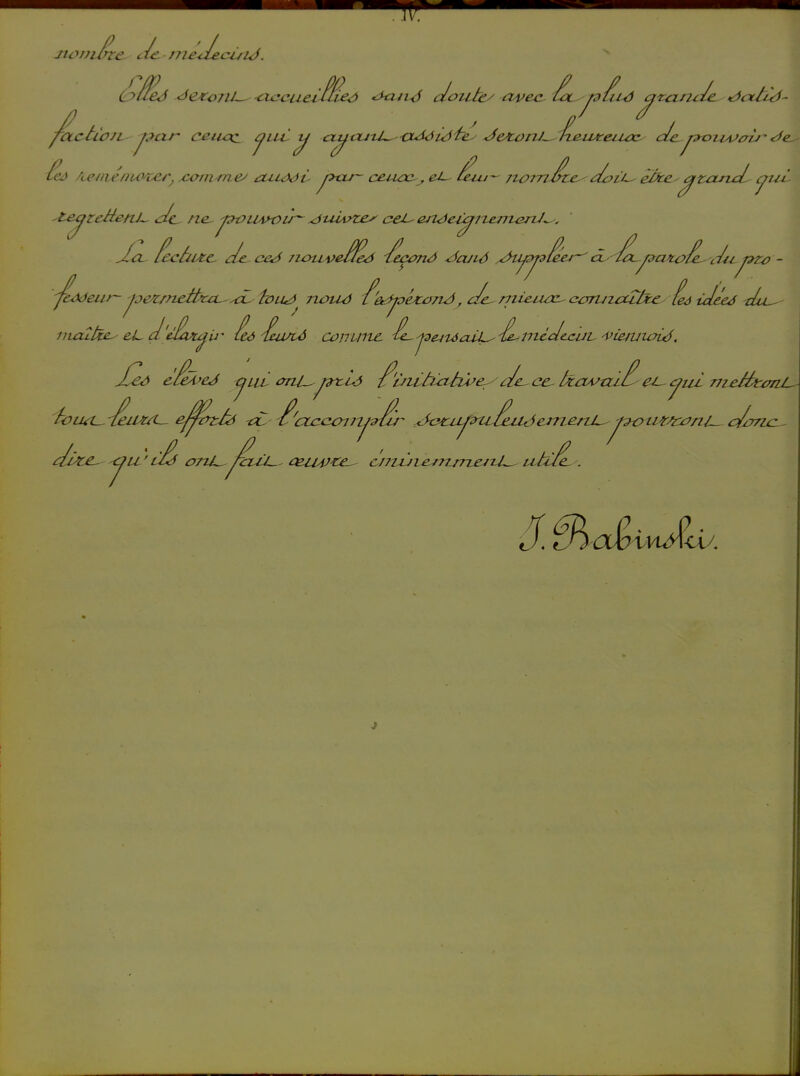 IV.
nombre de médecins.
Elles seront accueillies sans doute avec la plus grande satis-
faction par ceux qui y ayant assisté seront heureux de pouvoir se
les remémorer, comme aussi par ceux, et leur nombre doit être grand qui
regrettent de ne pouvoir suivre cet enseignement.
La lecture de ces nouvelles leçons sans suppléer à la parole du pro-
fesseur permettra à tous nous l'espérons, de mieux connaître les idées du
maître et d'élargir les leurs comme le pensait le médecin viennois.
Les élèves qui ont pris l'initiative de ce travail et qui mettront
tout leurs efforts à l'accomplir scrupuleusement pourront donc
dire qu'ils ont fait œuvre éminemment utile.
J. Babinski.